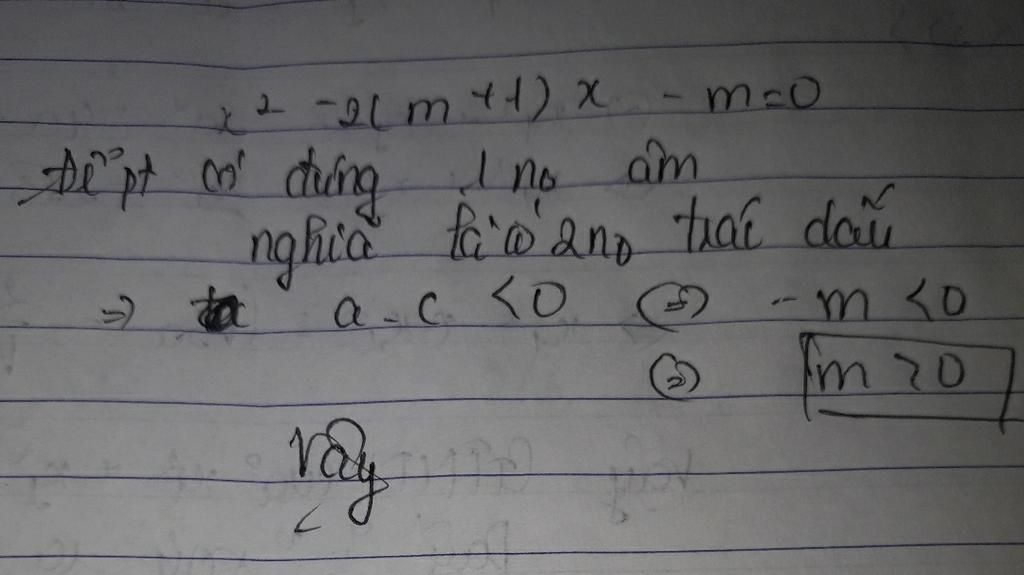 x² - 2(m+1)x - m=0
Để pt có đúng 1 n₀ âm
nghĩa là có 2n₀ trái dấu
⇒ a.c <0 ⇔ -m <0
⇔ m >0
Vậy